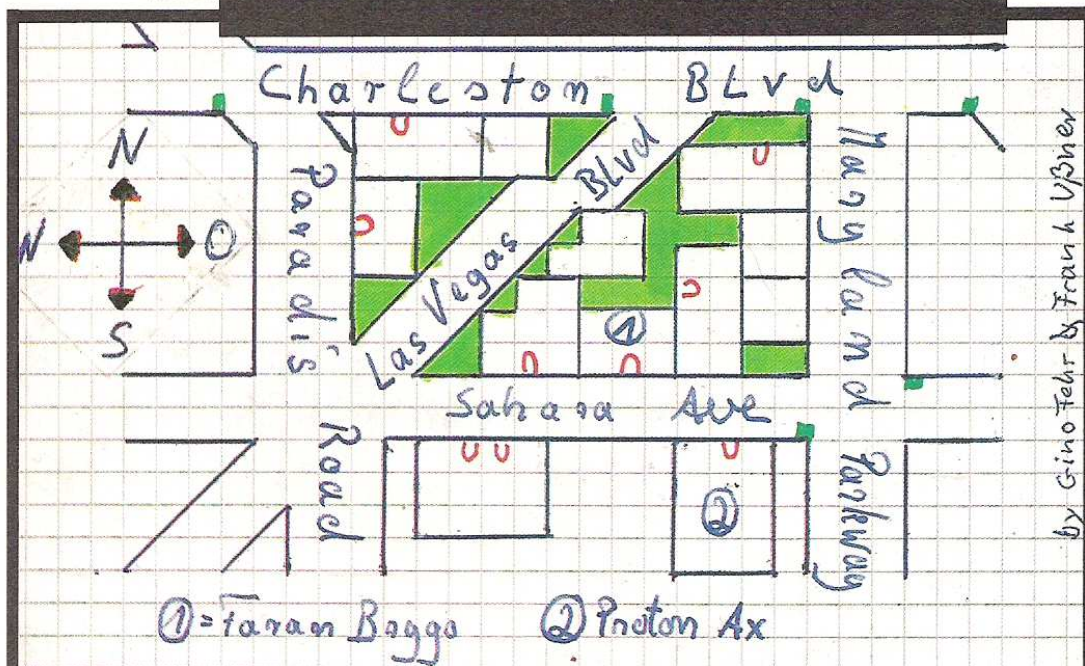 Charleston BLvd
N
N O
S
Paradis Road
Las Vegas BLvd
Maryland Parkway
①
Sahara Ave
②
①= Faran Boggo ② Proton Ax
by Gino Fehr & Frank Ußner